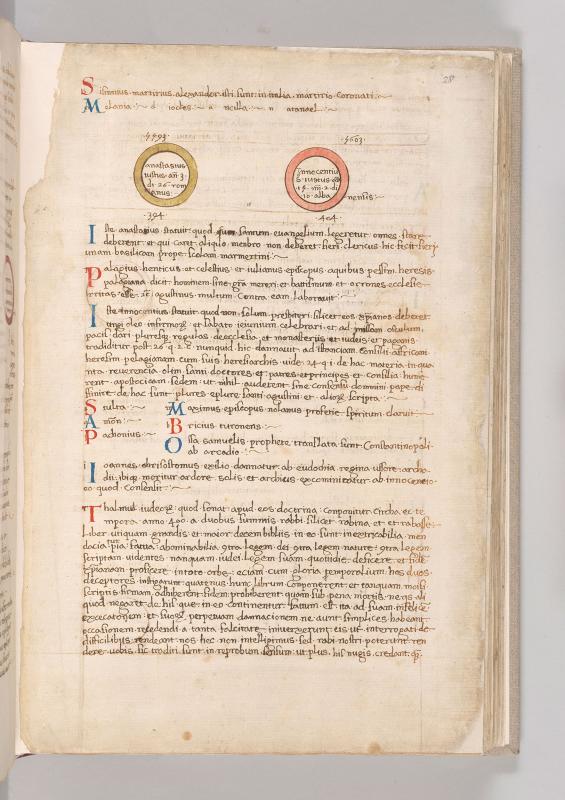 28
Sisinnius martirius alexander isti sunt in italia martirio coronati
Melania d iocles a ncilla n atanael
5593
5603
anastasius
iustus an 3
di 26 rom
anus
Innocentius
iustus
15 m 2 di
10 alba
nensis
394
404
Iste anastasius statuit quod sanctum evangelium legeretur omnes starent
deberent et qui caret aliquo menbro non deberet fieri clericus hic fecit fieri
unam basilicam prope scolam marmertini
Pelagius henticus et celestius et iulianus episcopus a quibus pessima heresis
pelagiana dicit hominem sine gra mereri et battismum et orrones ecclesie
irritas esse agustinus multum contra eam laboravit
Iste innocentius statuit quod non solum presbiteri silicet eos xpianos deberet
ungi oleo infirmorum et sabato ieiunium celebrari et ad missam osculum
pacis dari pluresque regulas de ecclesia et monasteriis et iudeis et paganis
traditur post 26 q 2 c nunquid hic damnavit ad istanciam consilii affricani
heresim pelagianam cum suis heresiarchis vide 24 q 1 de hac materia in quanta
reverencia olim santi doctores et patres et principes et consilia
apostolicam sedem ut nihil auderent sine consensu domini pape
de hac sunt plures santi agustini et aliorum scripta
Sisulta
Amon
Pachonius
Maximus episcopus nolanus profetie spiritum claruit
Bricius turonens
Ossa samuelis prophete translata sunt Constantinopoli
ab arcadio
Ioannes chrisostomus exilio dannatur ab eudochia regina uxore archadii
ibique moritur ardore solis et archius excominicatur ab innocencio
eo quod consensit
Thalmut iudeorum quod sonat apud eos doctrina componitur circha ec tempora
anno 400 a duobus summis rabbi silicet rabina et et rabasse
Liber utiquam grandis et maior decem bibliis in eo sunt inextricabilia mendacia
fatua abominabilia contra legem dei contra legem nature contra legem
scriptam videntes nanquam iudei legem suam quotidie deficere et fidem
xpianam proficere in toto orbe eciam cum gloria temporalium hos duos
deceptores instigarunt quatenus hunc librum componerent et tanquam mosi
scriptis firmam adhiberent fidem prohiberent quam sub pena mortis nequis
quod negaret de his que in eo continentur fatum est ita ad suam infelicem
excecationem et suorum perpetuam damnacionem ne aut simplices habeant
occasionem recedendi a tanta falcitate iniunxerunt eis ut interrogati de
difficilibus respondeant nos hec non intelligimus sed rabi nostri poterunt respondere
vobis sic traditi sunt in reprobum sensum ut plus his nugis credant